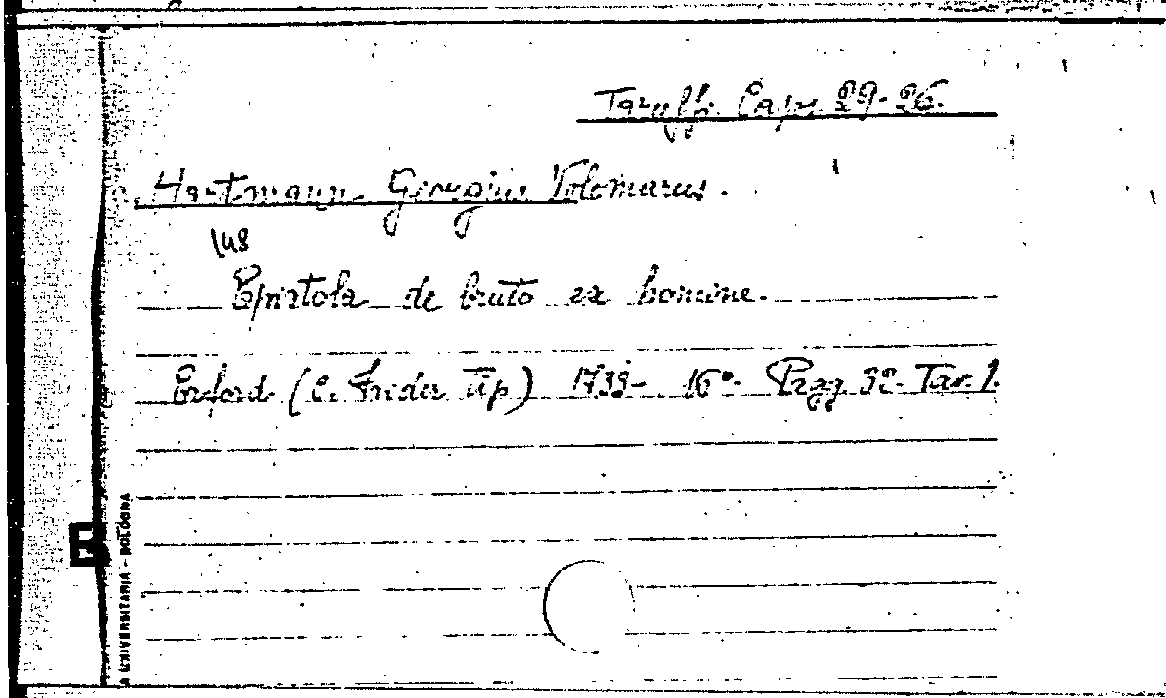 Taruffi. Caps. 29-26.
Hartmann Georgius Volomarus.
148
Epistola de bruto ex homine.
Erford (C. Frider Tip) 173 - 16°. Pagg. 32. Tav. 1.
A UNIVERSITARIA - BOLOGNA